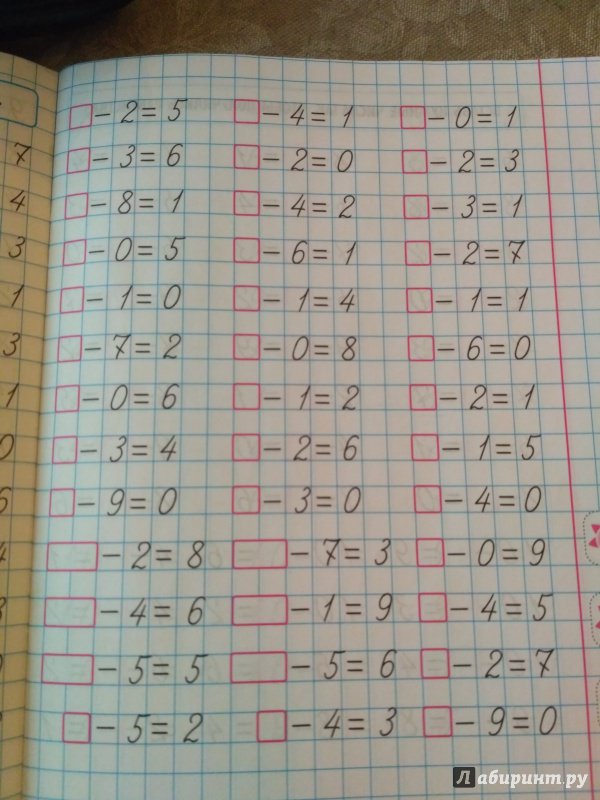 □ − 2 = 5 □ − 4 = 1 □ − 0 = 1
7 □ − 3 = 6 □ − 2 = 0 □ − 2 = 3
4 □ − 8 = 1 □ − 4 = 2 □ − 3 = 1
3 □ − 0 = 5 □ − 6 = 1 □ − 2 = 7
1 □ − 1 = 0 □ − 1 = 4 □ − 1 = 1
3 □ − 7 = 2 □ − 0 = 8 □ − 6 = 0
1 □ − 0 = 6 □ − 1 = 2 □ − 2 = 1
0 □ − 3 = 4 □ − 2 = 6 □ − 1 = 5
□ − 9 = 0 □ − 3 = 0 □ − 4 = 0
□ − 2 = 8 □ − 7 = 3 □ − 0 = 9
□ − 4 = 6 □ − 1 = 9 □ − 4 = 5
□ − 5 = 5 □ − 5 = 6 □ − 2 = 7
□ − 5 = 2 □ − 4 = 3 □ − 9 = 0
Лабиринт.ру